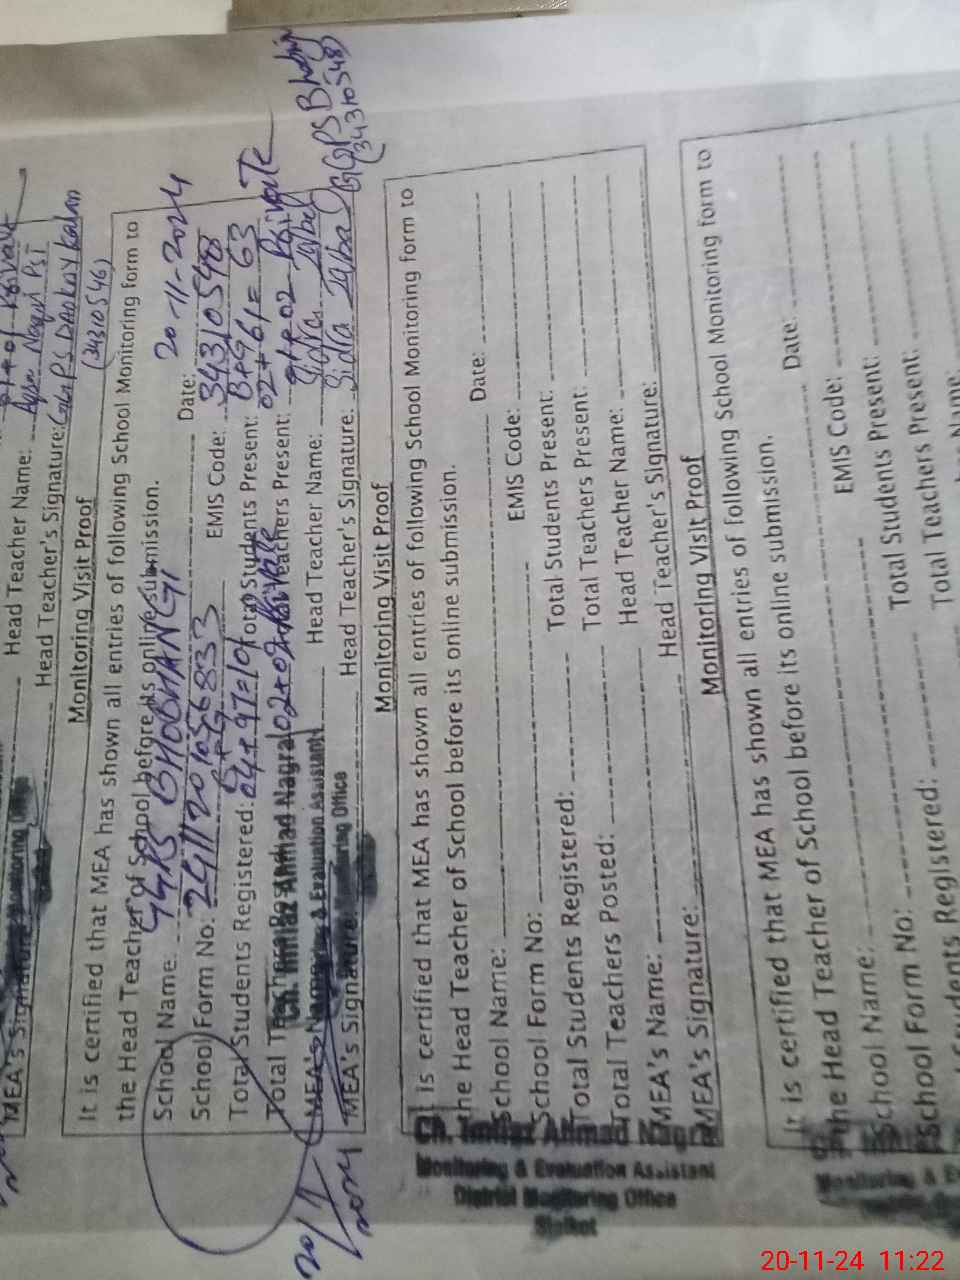 Head Teacher Name:
MEA's Signature Head Teacher's Signature: GGPS
(34310546)
Monitoring Visit Proof
It is certified that MEA has shown all entries of following School Monitoring form to
the Head Teacher of School before its online submission.
School Name: GGPS BHOBHANGI Date: 20-11-2024
School Form No: EMIS Code: 34310548
Total Students Registered: 04+97=101 Total Students Present: 02+61=63
Total Teachers Posted: 02+02 Private Teachers Present: 02 Private
MEA's Name: Head Teacher Name: Sidra
MEA's Signature: Head Teacher's Signature: Sidra
Ch. Imtiaz Ahmad Nagra
Monitoring & Evaluation Assistant
Monitoring Office
GGPS Bhobhangi
(34310548)
20/11
2024
Monitoring Visit Proof
It is certified that MEA has shown all entries of following School Monitoring form to
the Head Teacher of School before its online submission.
School Name: Date:
School Form No: EMIS Code:
Total Students Registered: Total Students Present:
Total Teachers Posted: Total Teachers Present:
MEA's Name: Head Teacher Name:
MEA's Signature: Head Teacher's Signature:
Ch. Imtiaz Ahmad Nagra
Monitoring & Evaluation Assistant
District Monitoring Office
Sialkot
Monitoring Visit Proof
It is certified that MEA has shown all entries of following School Monitoring form to
the Head Teacher of School before its online submission.
School Name: Date:
School Form No: EMIS Code:
Students Registered: Total Students Present:
Total Teachers Present:
Name:
20-11-24 11:22